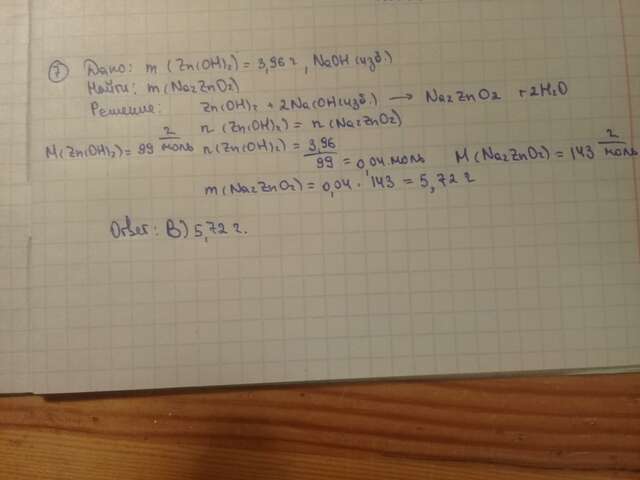 7 Дано: m (Zn(OH)₂) = 3,96 г, NaOH (изб.)
Найти: m (Na₂ZnO₂)
Решение: Zn(OH)₂ + 2NaOH(изб.) → Na₂ZnO₂ + 2H₂O
n (Zn(OH)₂) = n (Na₂ZnO₂)
M(Zn(OH)₂) = 99 г/моль n (Zn(OH)₂) = 3,96/99 = 0,04 моль M (Na₂ZnO₂) = 143 г/моль
m (Na₂ZnO₂) = 0,04 · 143 = 5,72 г
Ответ: В) 5,72 г.